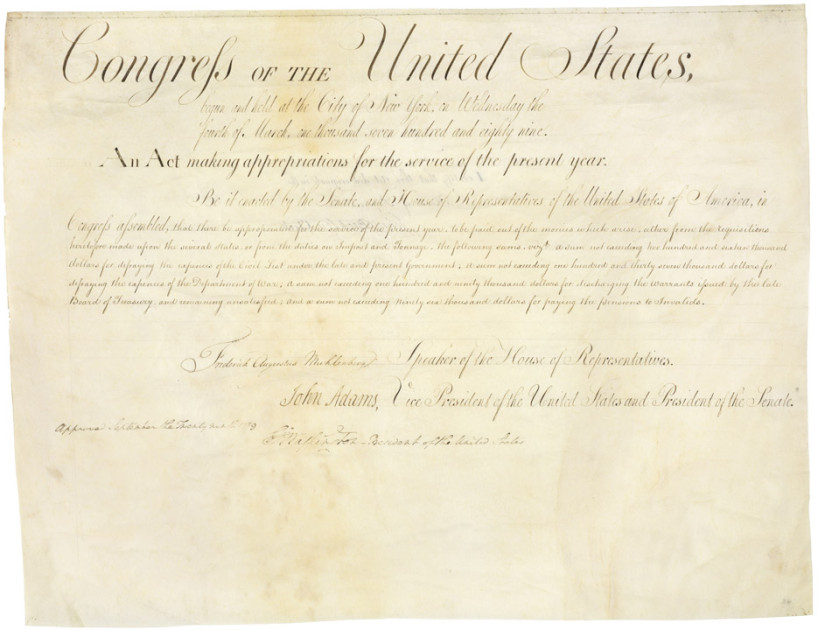 Congress OF THE United States,
begun and held at the City of New York, on Wednesday the
fourth of March, one thousand seven hundred and eighty nine.
An Act making appropriations for the service of the present year.
Be it enacted by the Senate, and House of Representatives of the United States of America, in
Congress assembled, that there be appropriated for the service of the present year, to be paid out of the monies which arise, either from the requisitions
heretofore made upon the several states, or from the duties on impost and Tonnage, the following sums, viz. A sum not exceeding two hundred and sixteen thousand
dollars for defraying the expenses of the Civil List under the late and present Government; A sum not exceeding one hundred and thirty seven thousand dollars for
defraying the expenses of the Department of War; A sum not exceeding one hundred and ninety thousand dollars for discharging the warrants issued by the late
Board of Treasury, and remaining unsatisfied; and a sum not exceeding Ninety six thousand dollars for paying the pensions to Invalids.
Frederick Augustus Muhlenberg Speaker of the House of Representatives.
John Adams, Vice President of the United States and President of the Senate.
Approved September the Twenty ninth 1789
G. Washington President of the United States